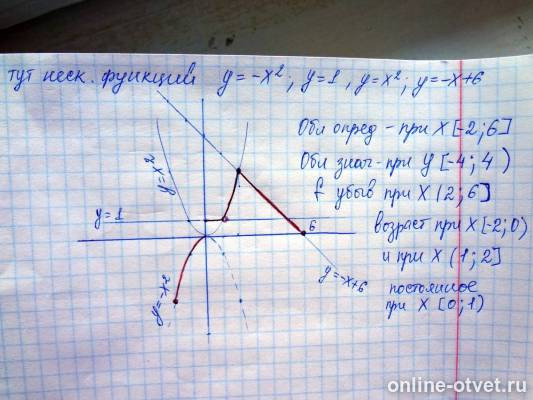 тут неск. функций y=-x²; y=1, y=x²; y=-x+6
Обл опред - при X [-2; 6]
Обл знач - при y [-4; 4)
f убыв при X (2; 6]
возраст при X [-2; 0)
и при X (1; 2]
постоянное
при X [0; 1)
y=x²
y=1
6
y=-x+6
y=-x²
online-otvet.ru